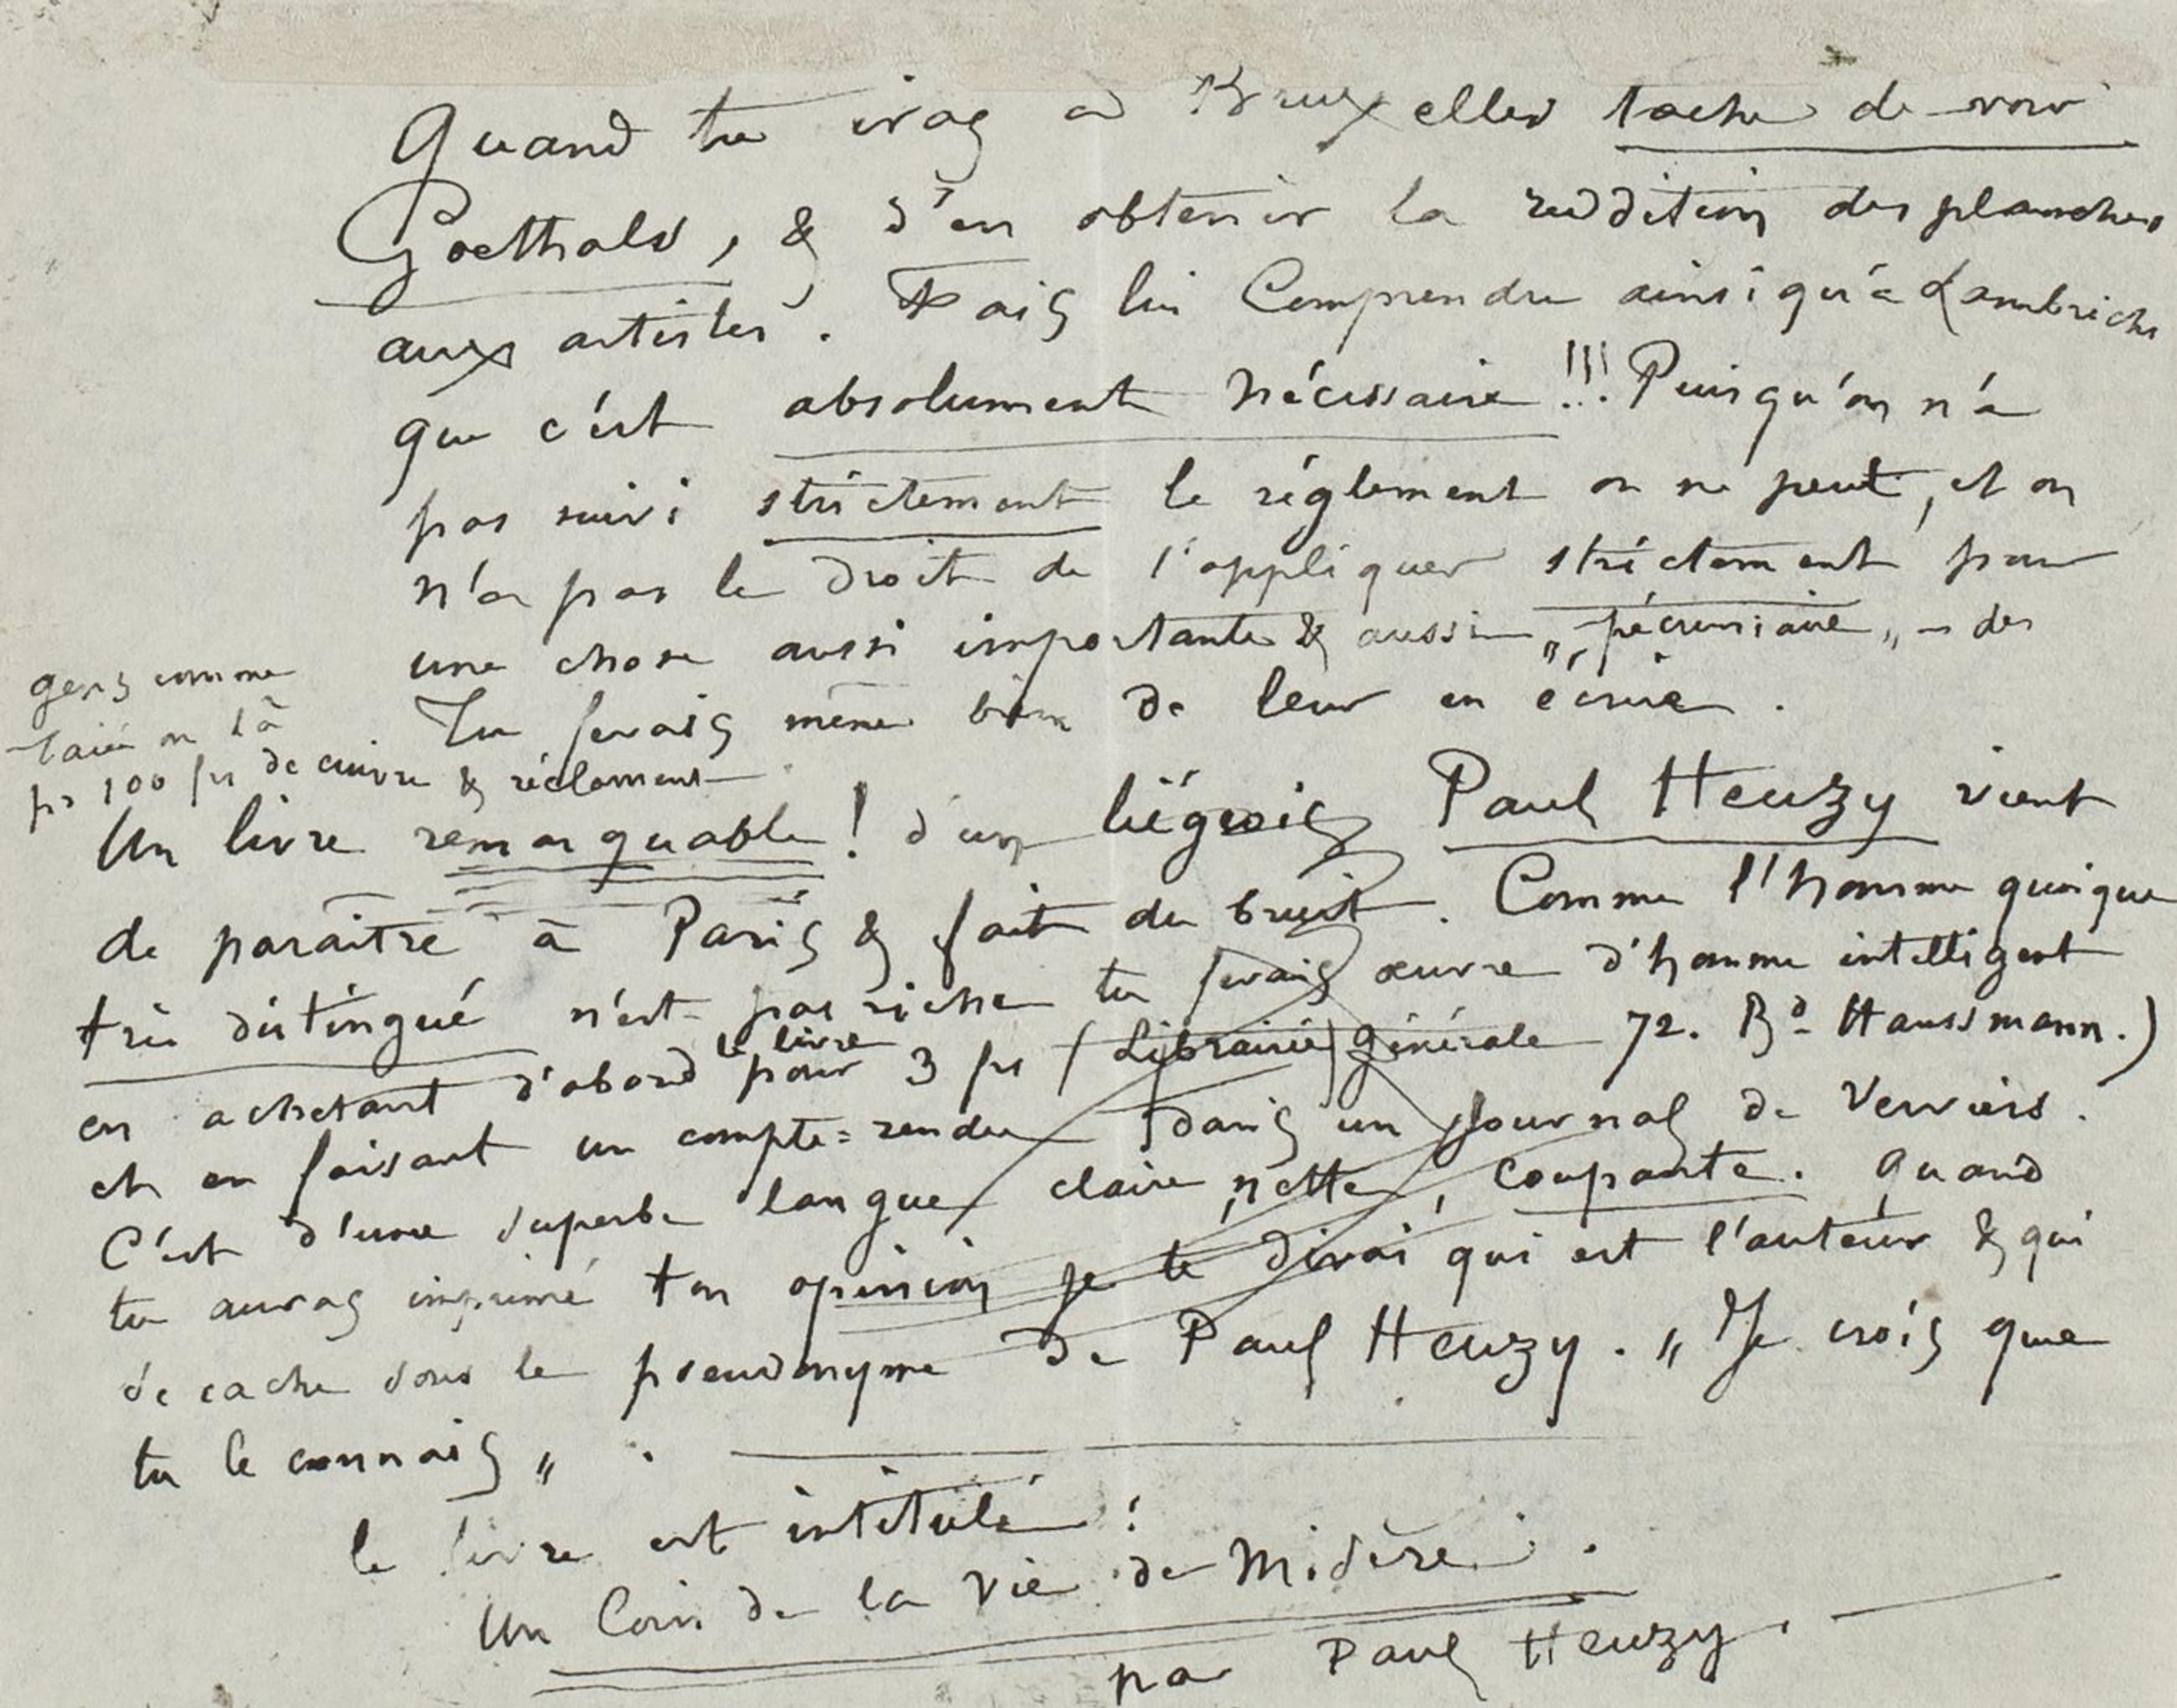 Quand tu iras a Bruxelles tache de voir
Goethals, & d'en obtenir la reddition des planches
aux artistes. Fais lui Comprendre ainsi qu'à Lambrichs
que c'est absolument nécessaire !!! Puisqu'on n'a
pas suivi strictement le réglement on ne peut, et on
n'a pas le droit de l'appliquer strictement pour
une chose aussi importante & aussi „pécuniaire„ – des
gens comme
Tu ferais même bien de leur en écrire.
on là
pr 100 frs de cuivre & réclament
Un livre remarquable ! d'un liégeois Paul Heuzy vient
de paraître à Paris & fait du bruit. Comme l'homme quoique
très distingué n'est pas riche tu ferais œuvre d'homme intelligent
en achetant d'abord le livre pour 3 frs (Librairie Générale 72. Bd Haussmann.)
et en faisant un compte-rendu dans un Journal de Verviers.
C'est d'une superbe langue claire, nette, coupante. Quand
tu auras imprimé ton opinion je te dirai qui est l'auteur & qui
se cache sous le pseudonyme de Paul Heuzy. „Je crois que
tu le connais„.
le livre est intitulé :
Un Coin de la Vie de Misère.
par Paul Heuzy.